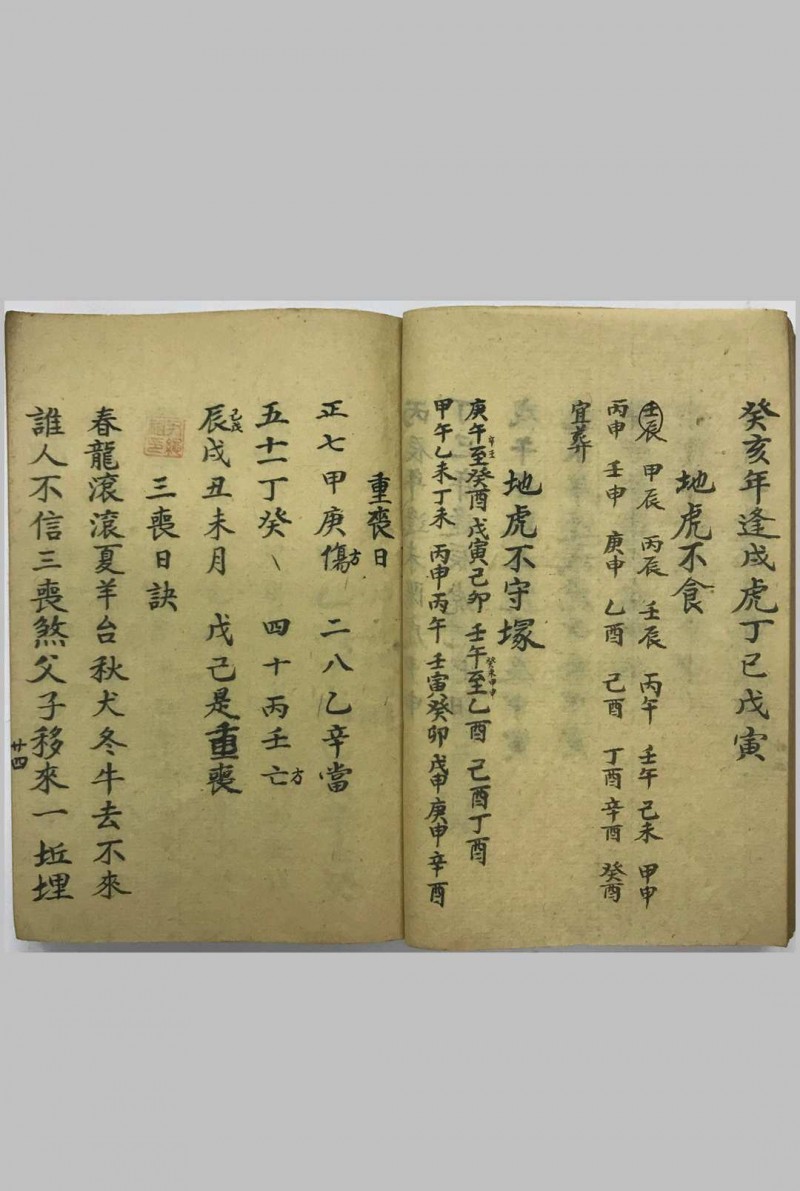 癸亥年逢戌虎丁巳戊寅
地虎不食
壬辰 甲辰 丙辰 壬辰 丙午 壬午 己未 甲申
丙申 壬申 庚申 乙酉 己酉 丁酉 辛酉 癸酉
宜葬
地虎不守塚
庚午至癸酉 戊寅己卯 壬午至乙酉 己酉丁酉
辛壬
癸未甲申
甲午乙未丁未 丙申丙午 壬寅癸卯 戊申庚申辛酉
重喪日
正七甲庚傷方 二八乙辛當
五十一丁癸、 四十丙壬亡方
辰戌丑未月 戊己是重喪
三喪日訣
春龍滾滾夏羊台秋犬冬牛去不來
誰人不信三喪煞父子移來一坵埋
廿四